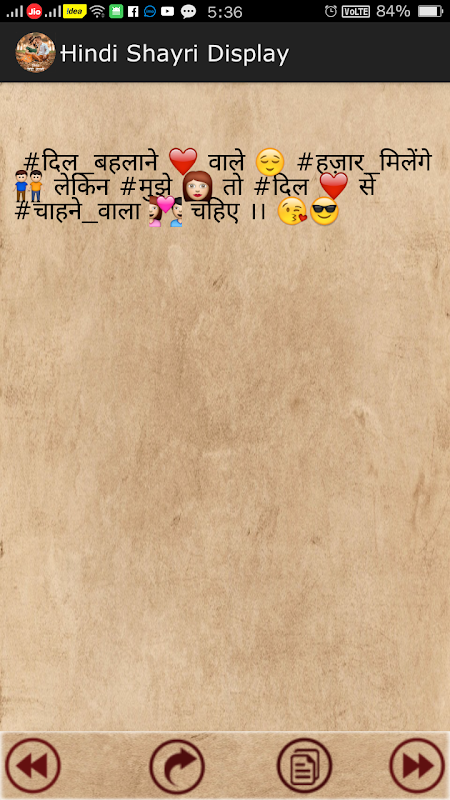 Jio idea 5:36 VoLTE 84%
Hindi Shayri Display
#दिल_बहलाने ❤️ वाले 😌 #हज़ार_मिलेंगे
👬 लेकिन #मुझे 👩 तो #दिल ❤️ से
#चाहने_वाला 💑 चहिए ।। 😘😎